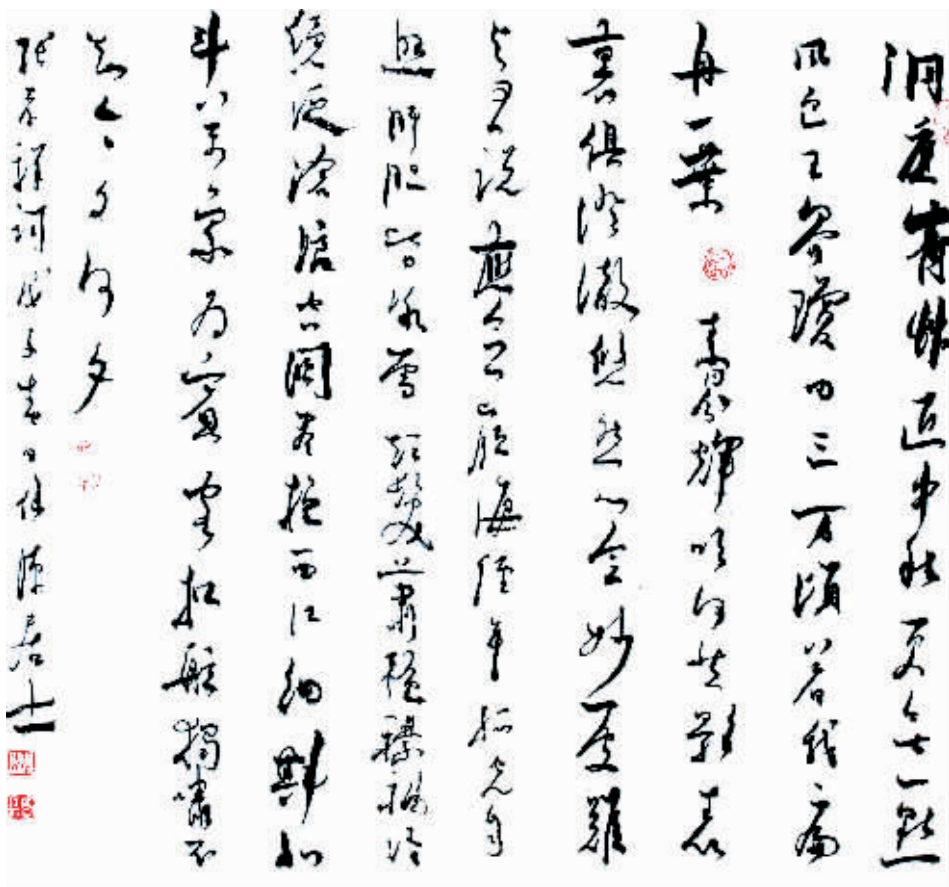 洞庭青草近中秋更無一點
風色玉界瓊田三万頃著我扁
舟一葉 素月分輝明河共影表
裏俱澄澈悠然心會妙處難
與君說應念嶺海經年孤光自
照肝膽皆冰雪短髮蕭襟袖冷
穩泛滄溟空闊盡挹西江細斟北
斗万象為賓客扣舷獨嘯不
知今夕何夕
張孝祥詞戊子春日陳居士